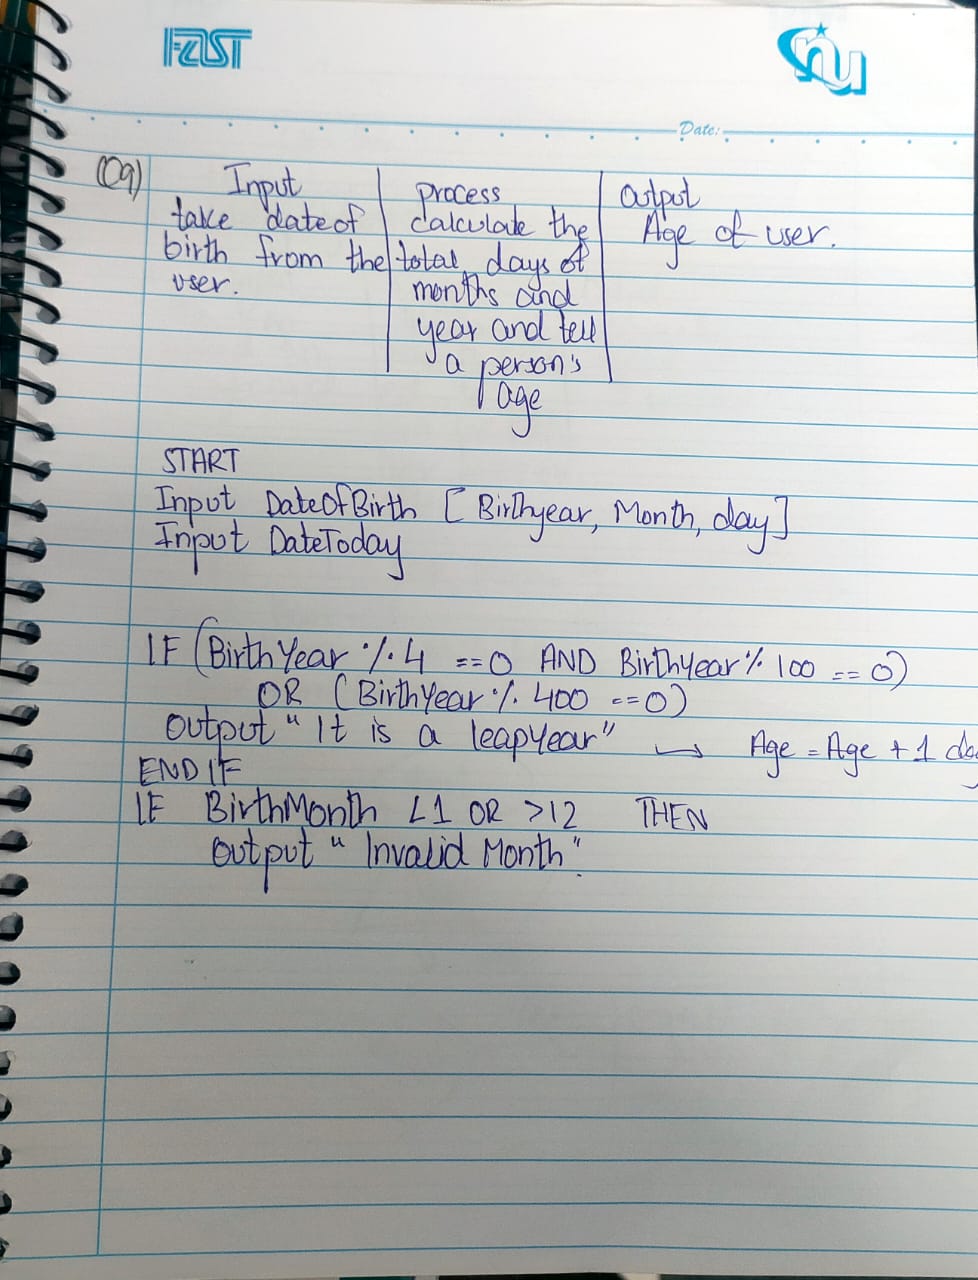 FAST
nu
Date:
(Q9)
Input
take date of
birth from the
user.
process
calculate the
total days of
months and
year and tell
a person's
age
Output
Age of user.
START
Input DateOfBirth [Birthyear, Month, day]
Input DateToday
IF (BirthYear % 4 ==0 AND BirthYear % 100 == 0)
OR (BirthYear % 400 ==0)
output "It is a leapyear" → Age = Age + 1
END IF
IF BirthMonth <1 OR >12 THEN
output "Invalid Month".